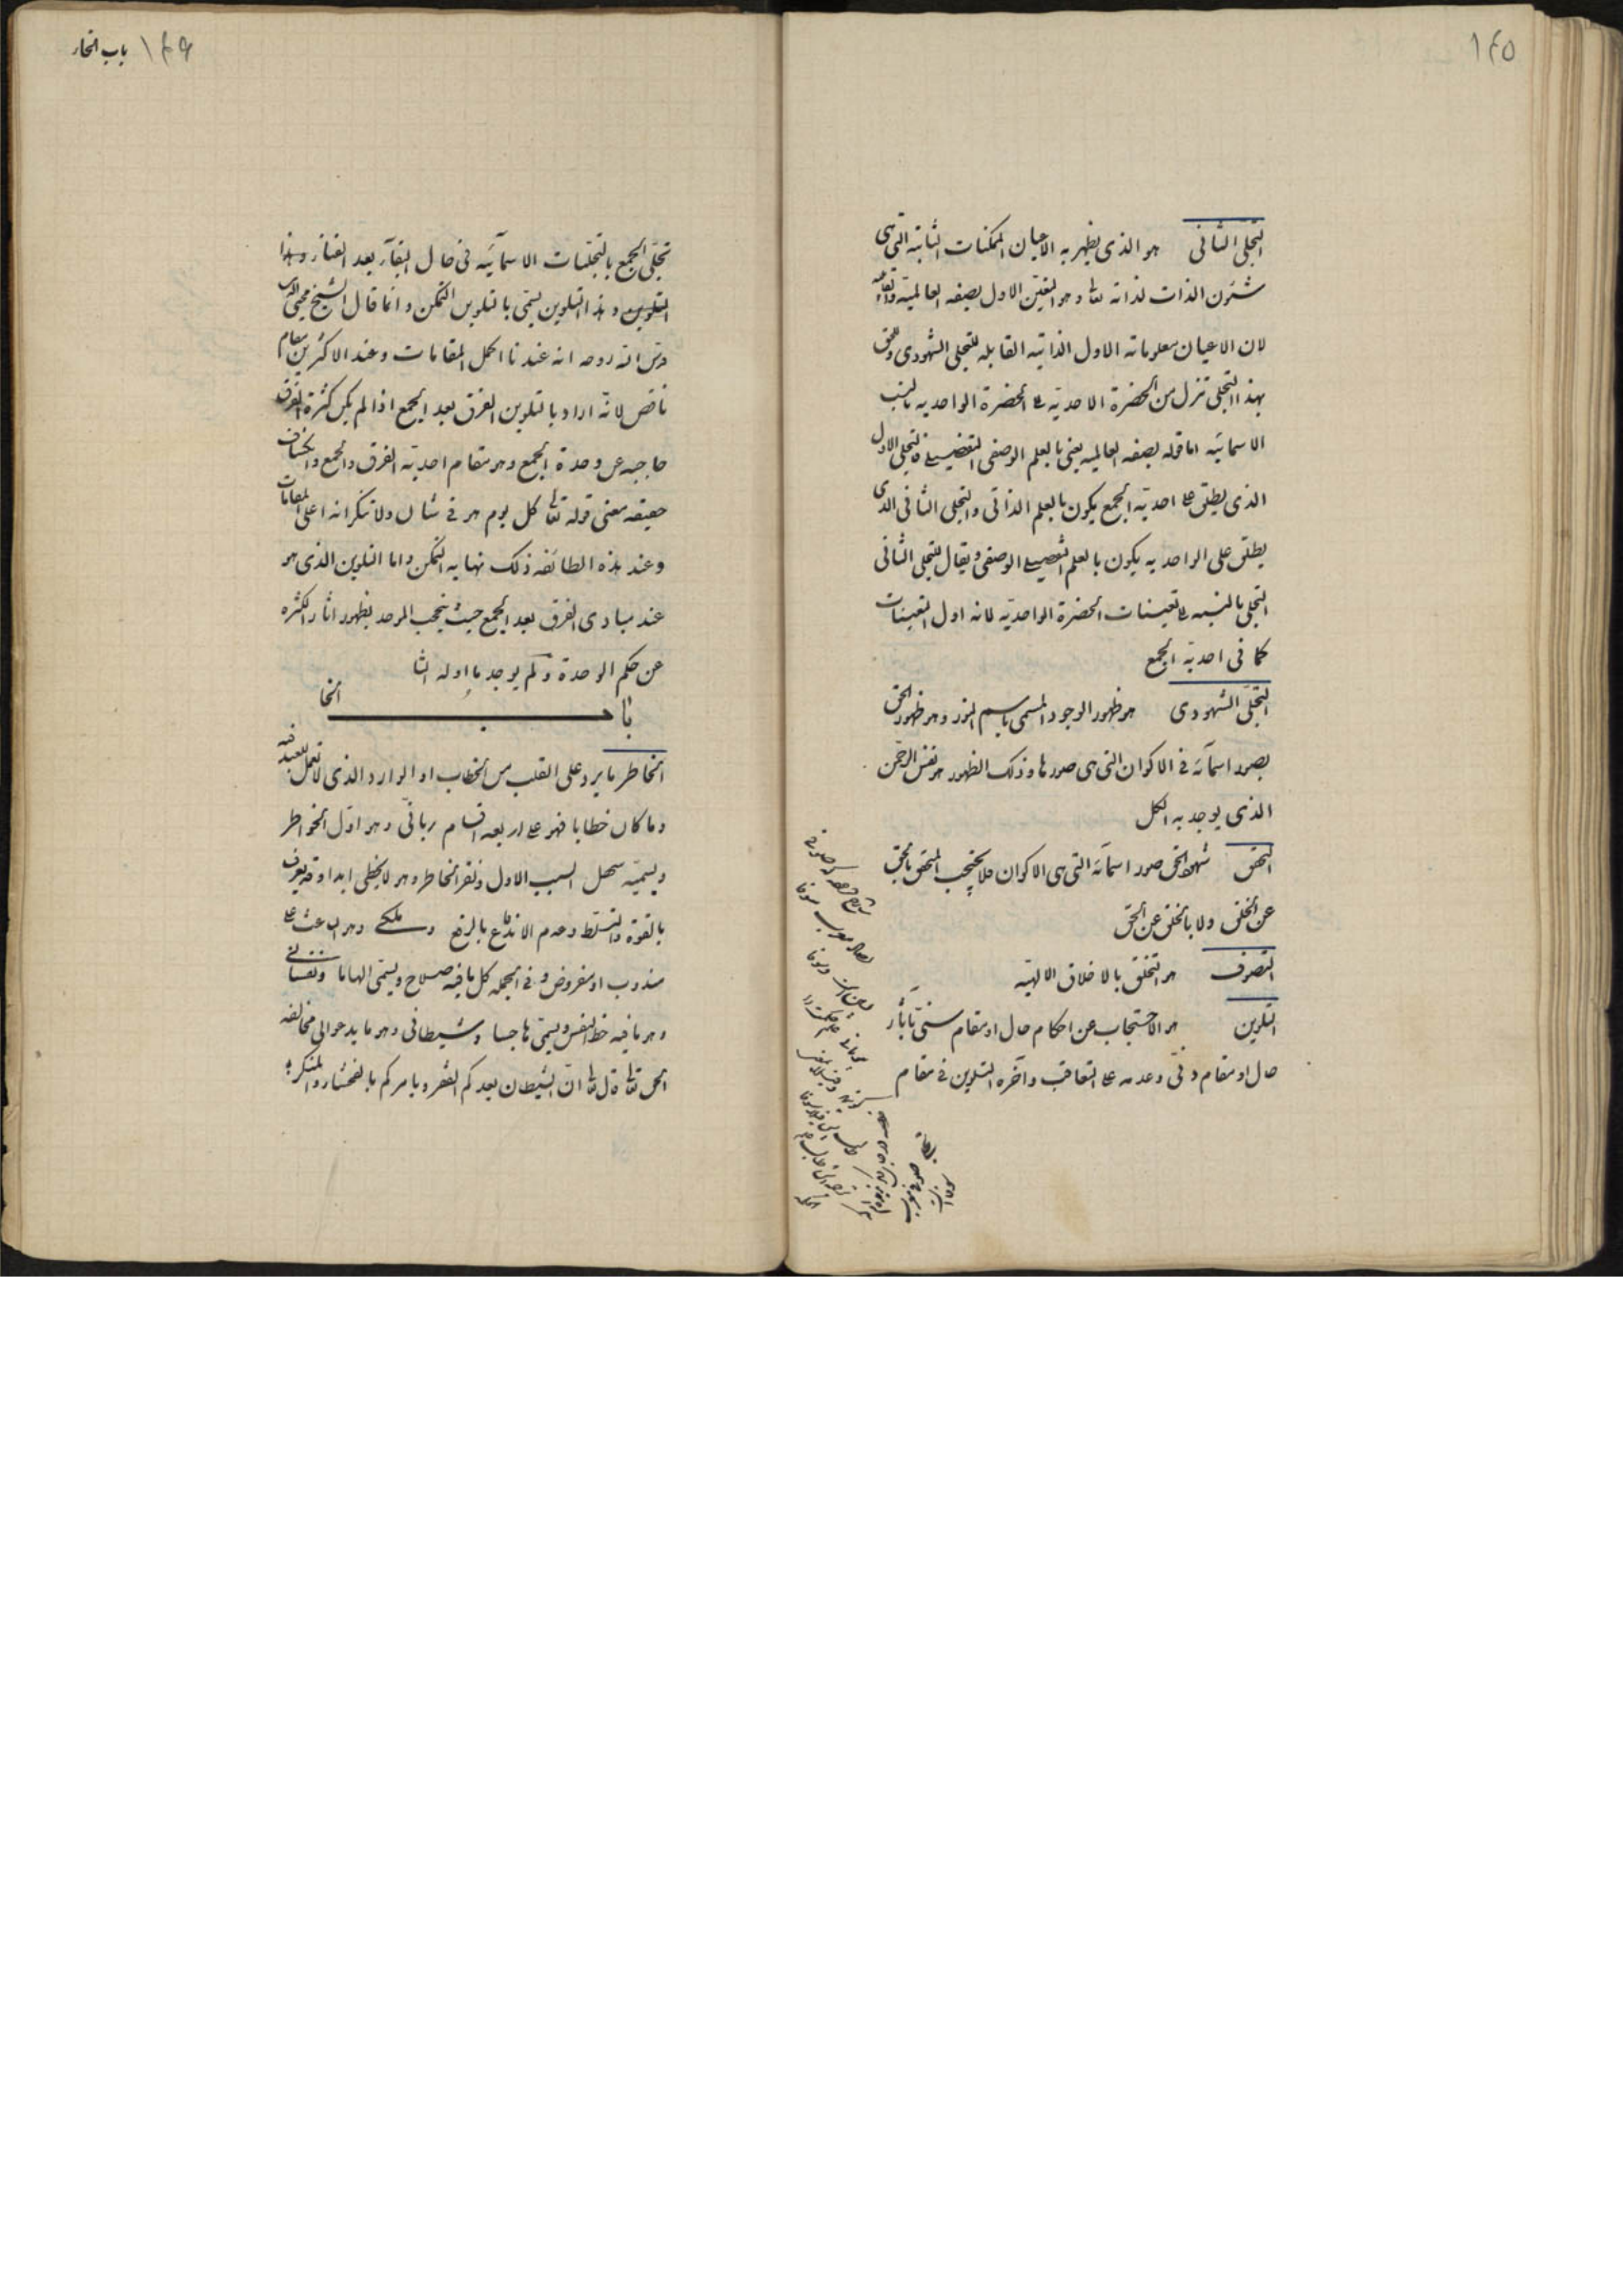 ١٤٥
التجلی الثانی هو الذی یظهر به الاعیان الممکنات الثابته التی هی
شئون الذات لذاته تعا وهو التعین الاول بصفه العالمیة والقابلیه
لان الاعیان معلوماته الاول الذاتیه القابله للتجلی الشهودی وللحق
بهذا التجلی تنزل من الحضرة الاحدیة الی الحضرة الواحدیه بالنسب
الاسمائیه اما قوله بصفه العالمیه یعنی بالعلم الوصفی التفصیلی فالتجلی الاول
الذی یطلق علی احدیة الجمع یکون بالعلم الذاتی والتجلی الثانی الذی
یطلق علی الواحدیه یکون بالعلم التفصیلی الوصفی ویقال للتجلی الثانی
التجلی بالنسبه الی تعینات الحضرة الواحدیه لانه اول التعینات
کما فی احدیة الجمع
التجلی الشهودی هو ظهور الوجود المسمی باسم النور وهو ظهور الحق
بصور اسمآئه فی الاکوان التی هی صورها وذلک الظهور هو نفس الرحمن
الذی یوجد به الکل
التحقق شهود الحق صور اسمآئه التی هی الاکوان فلا یحتجب المتحقق بالحق
عن الخلق ولا بالخلق عن الحق
التصوف هو التخلق بالاخلاق الالهیه
التلوین هو الاحتجاب عن احکام حال او مقام سنی بآثار
حال او مقام دنی وعدمه علی التعاقب وآخره التلوین فی مقام
١٤٦ باب الخاء
تجلی الجمع بالتجلیات الاسمآئیه فی حال البقآء بعد الفناء وهذا
التلوین وهذا التلوین یسمی بالتلوین التمکن وانما قال الشیخ محیی الدین
قدس الله روحه انه عندنا اکمل المقامات وعند الاکثرین مقام
ناقص لانه اراد بالتلوین الفرق بعد الجمع اذا لم یکن کثرة الفرق
حاجبه عن وحدة الجمع وهو مقام احدیة الفرق والجمع وانکشاف
حقیقه معنی قوله تعا کل یوم هو فی شان ولا شک انه اعلی المقامات
وعند هذه الطائفه ذلک نهایه التمکن واما التلوین الذی هو
عند مبادی الفرق بعد الجمع حیث یحتجب الموحد بظهور اثار الکثره
عن حکم الوحدة ولم یوجد ما اوله الثا
باب الخا
الخاطر ما یرد علی القلب من الخطاب او الوارد الذی لا تعمل للعبد فیه
وما کان خطابا فهو علی اربعه اقسام ربانی وهو اول الخواطر
ویسمیه سهل السبب الاول ونقر الخاطر وهو لا یخطی ابدا وقد یعرف
بالقوة والتسلط وعدم الاندفاع بالدفع وملکی وهو الباعث علی
مندوب او مفروض و فی الجمله کل ما فیه صلاح ویسمی الهاما ونفسانی
وهو ما فیه حظ النفس ویسمی هاجسا وشیطانی وهو ما یدعو الی مخالفه
الحق تعا قال تعا ان الشیطان یعدکم الفقر ویامرکم بالفحشاء والمنکر